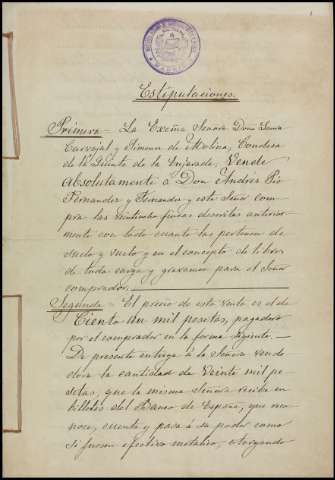 Estipulaciones.
Primera - La Excma Señora Doña
Carvajal y Jimenez de Molina, Condesa
de la Quinta de la Enjarada, Vende
absolutamente á Don Andrés Pio
Fernandez y Fernandez y este Señor com
pra las fincas descritas anterior
mente con todo cuanto las pertenece de
hecho y vuelo y en el concepto de libres
de toda carga y gravamen para el Señor
comprador.
Segunda - El precio de esta venta es el de
Ciento un mil pesetas, pagadas
por el comprador en la forma siguiente. -
De presente entrega á la Señora vende
dora la cantidad de Veinte mil pe
setas, que la misma Señora recibe en
billetes del Banco de España, que reco
noce, cuenta y pasa á su poder como
si fueran efectivo metalico, otorgando